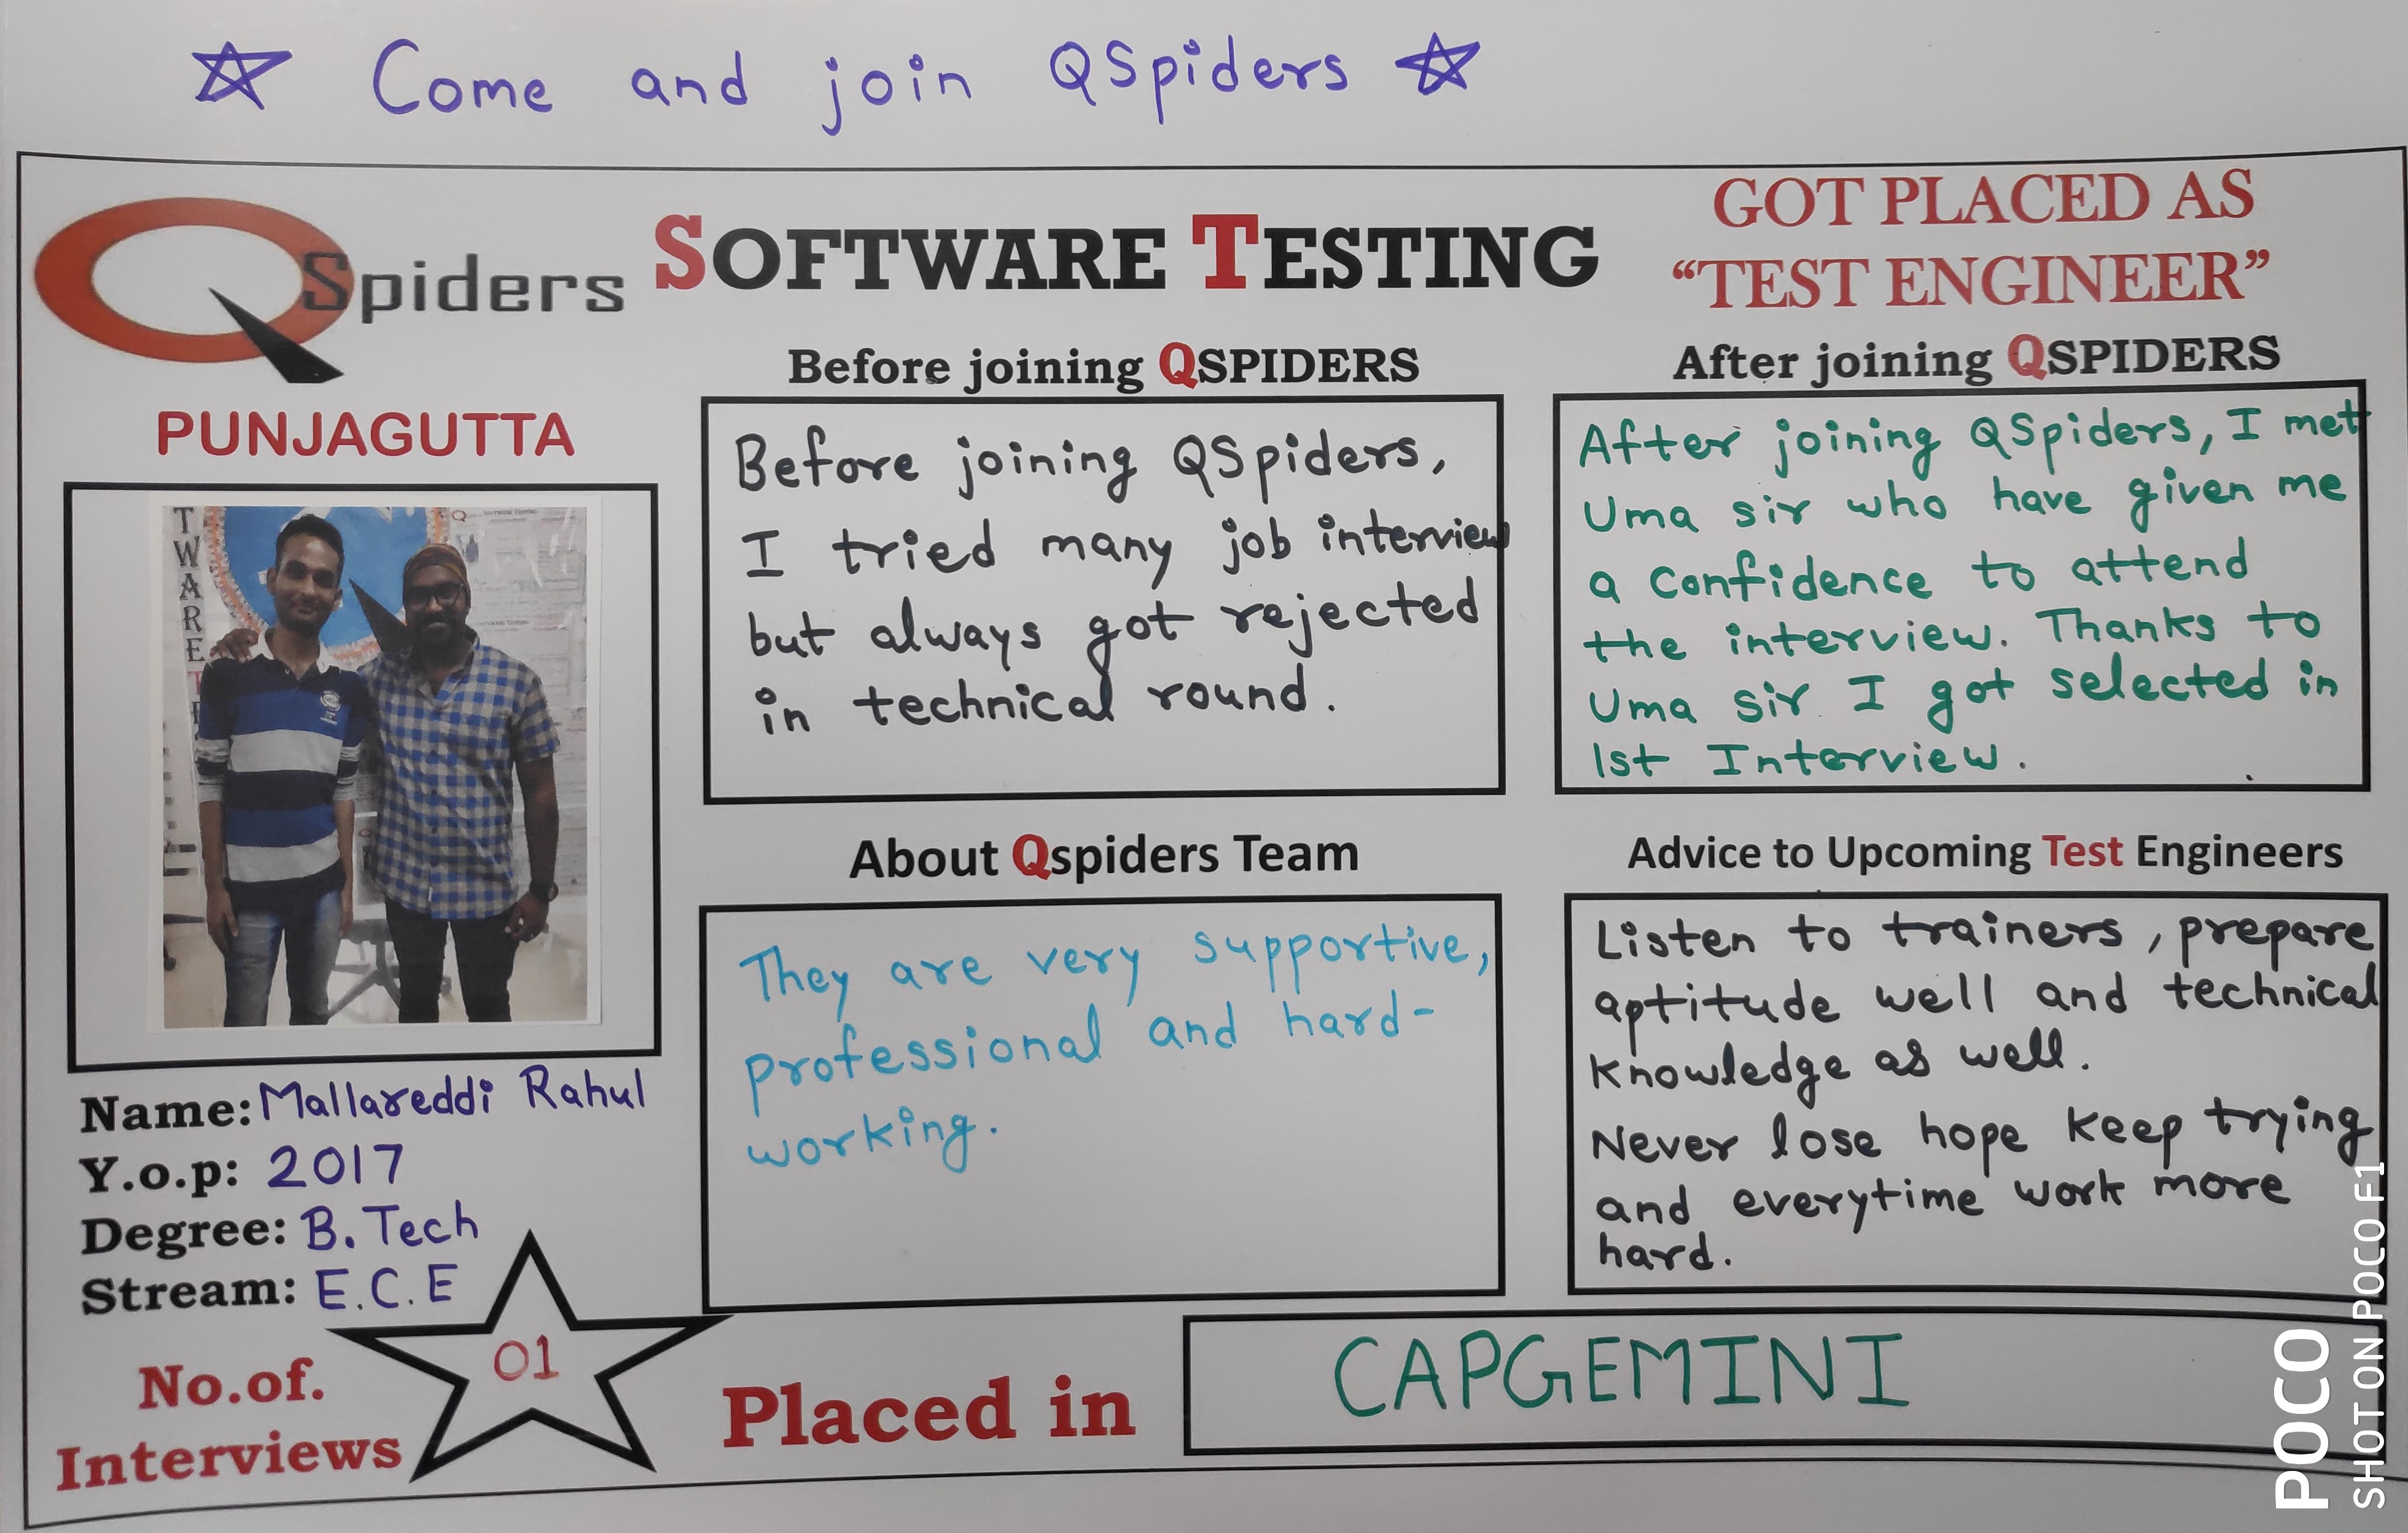 Come and join QSpiders
QSpiders
SOFTWARE TESTING
GOT PLACED AS
“TEST ENGINEER”
PUNJAGUTTA
T
W
A
R
E
T
Name: Mallareddi Rahul
Y.o.p: 2017
Degree: B. Tech
Stream: E.C.E
No.of.
Interviews
01
Before joining QSPIDERS
Before joining QSpiders,
I tried many job interview
but always got rejected
in technical round.
After joining QSPIDERS
After joining QSpiders, I met
Uma sir who have given me
a confidence to attend
the interview. Thanks to
Uma sir I got selected in
1st Interview.
About Qspiders Team
They are very supportive,
professional and hard-
working.
Advice to Upcoming Test Engineers
Listen to trainers, prepare
aptitude well and technical
knowledge as well.
Never lose hope keep trying
and everytime work more
hard.
Placed in
CAPGEMINI
POCO
SHOT ON POCO F1